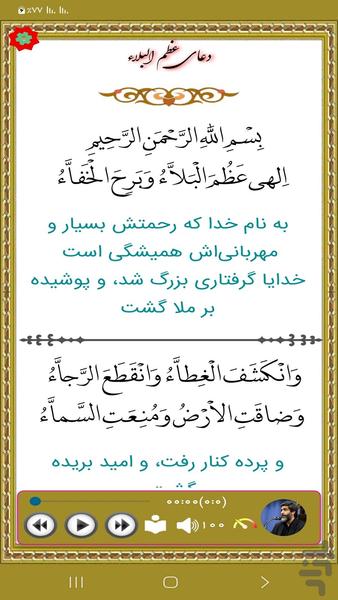 ٪۷۷
دعای عظم البلاء
بِسْمِ اللهِ الرَّحْمَنِ الرَّحِيمِ
اِلهی عَظُمَ الْبَلاَّءُ وَ بَرِحَ الْخَفاَّءُ
به نام خدا که رحمتش بسیار و
مهربانی‌اش همیشگی است
خدایا گرفتاری بزرگ شد، و پوشیده
بر ملا گشت
وَ انْكَشَفَ الْغِطاَّءُ وَ انْقَطَعَ الرَّجاَّءُ
وَ ضاقَتِ الاَْرْضُ وَ مُنِعَتِ السَّماَّءُ
و پرده کنار رفت، و امید بریده
گشت
۰۰:۰۰(۰:۰)
۱۰۰
بازار